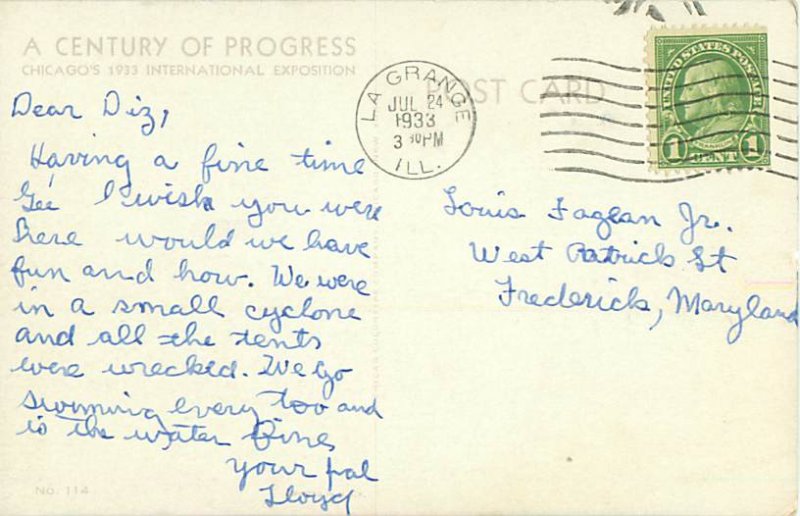 A CENTURY OF PROGRESS
CHICAGO'S 1933 INTERNATIONAL EXPOSITION
POST CARD
LA GRANGE
JUL 24
1933
3 30 PM
ILL.
UNITED STATES POSTAGE
FRANKLIN
1 CENT 1
Dear Diz,
Having a fine time
Gee I wish you were
here would we have
fun and how. We were
in a small cyclone
and all the tents
were wrecked. We go
swimming every too and
is the water fine
your pal
Lloyd
Louis Fagean Jr.
West Patrick St
Frederick, Maryland
No. 114